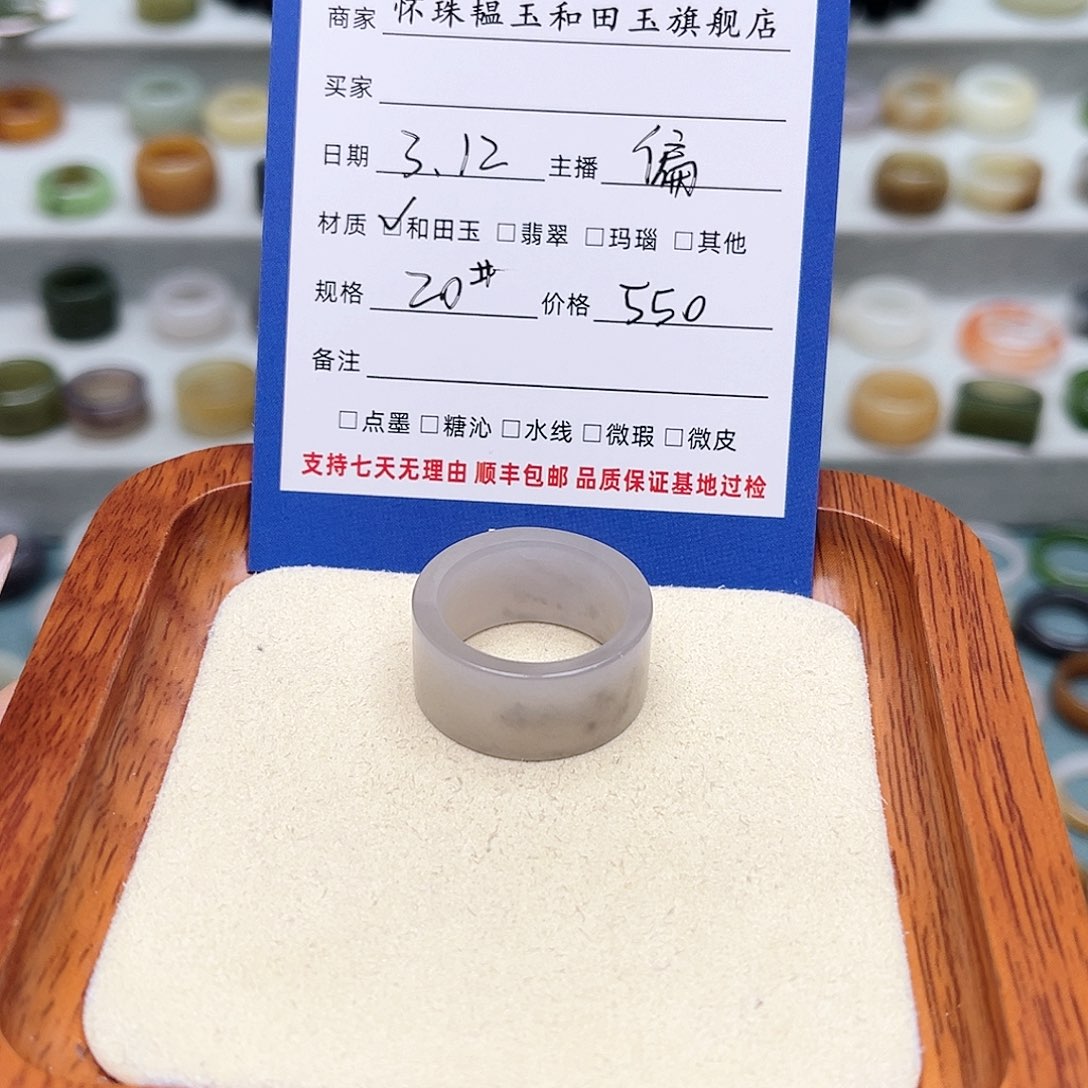 商家 怀珠韫玉和田玉旗舰店
买家
日期 3.12 主播 偏
材质 ☑和田玉 □翡翠 □玛瑙 □其他
规格 20# 价格 550
备注
□点墨 □糖沁 □水线 □微瑕 □微皮
支持七天无理由 顺丰包邮 品质保证基地过检